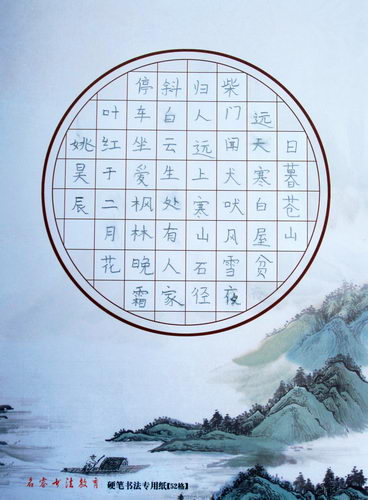 日暮苍山
远天寒白屋贫
柴门闻犬吠风雪夜
归人远上寒山石径
斜白云生处有人家
停车坐爱枫林晚霜
叶红于二月花
姚昊辰
名书法教育 硬笔书法专用纸【52格】